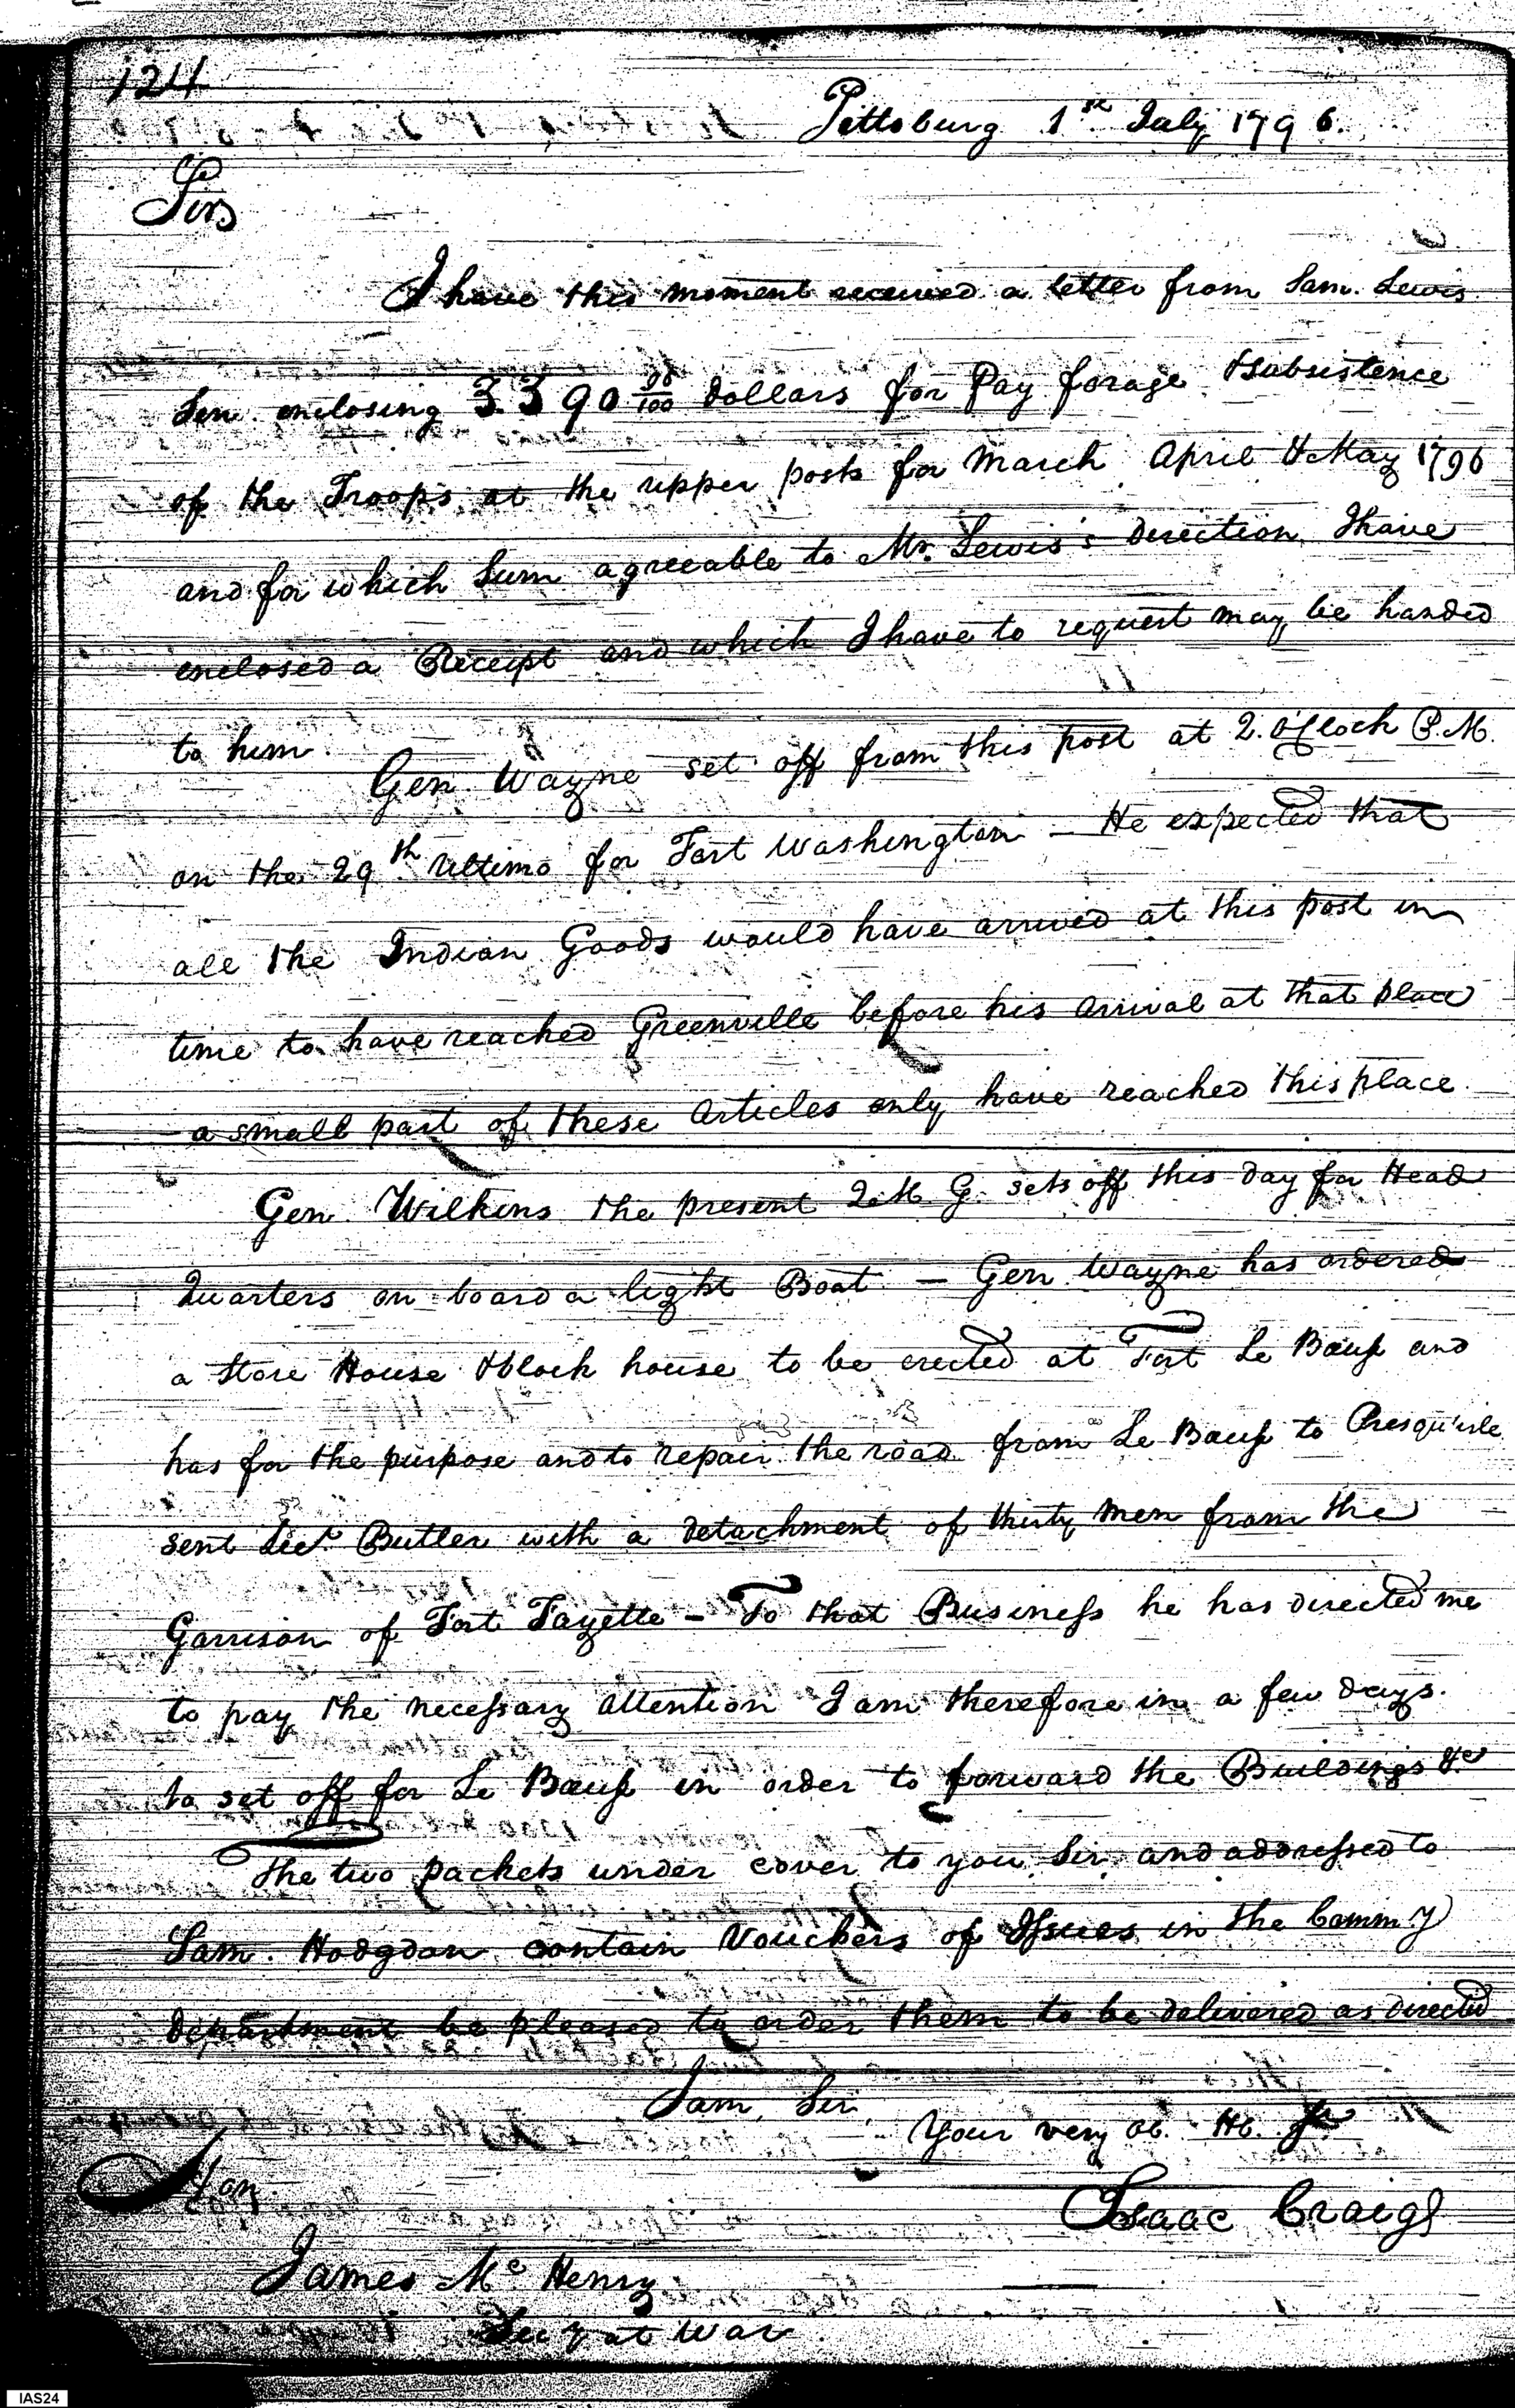 124
Pittsburg 1st July 1796.
Sir
I have this moment received a letter from Sam. Lewis
Sen. enclosing 3390 00/100 dollars for Pay forage & subsistence
of the Troops at the upper posts for March April & May 1796
and for which Sum agreeable to Mr. Lewis's direction I have
enclosed a Receipt and which I have to request may be handed
to him.
Gen. Wayne set off from this post at 2. o'Clock P.M.
on the 29th Ultimo for Fort Washington — He expected that
all the Indian Goods would have arrived at this post in
time to have reached Greenville before his arrival at that place
a small part of these articles only have reached this place.
Gen. Wilkins the present Q. M. G. sets off this day for Head
Quarters on board a light Boat — Gen. Wayne has ordered
a Store House & block house to be erected at Fort Le Bœuf and
has for the purpose and to repair the road from Le Bœuf to Presqu'isle
sent Lieut. Butler with a detachment of thirty Men from the
Garrison of Fort Fayette — To that Business he has directed me
to pay the necessary attention I am therefore in a few days
to set off for Le Bœuf in order to forward the Buildings &c
The two packets under cover to you Sir, and addressed to
Sam. Hodgdon contain Vouchers of Issues in the Comm.y
department be pleased to order them to be delivered as directed
I am, Sir
Your very ob. H.
Isaac Craig
Hon.
James Mc Henry
Secy at War.
IAS24